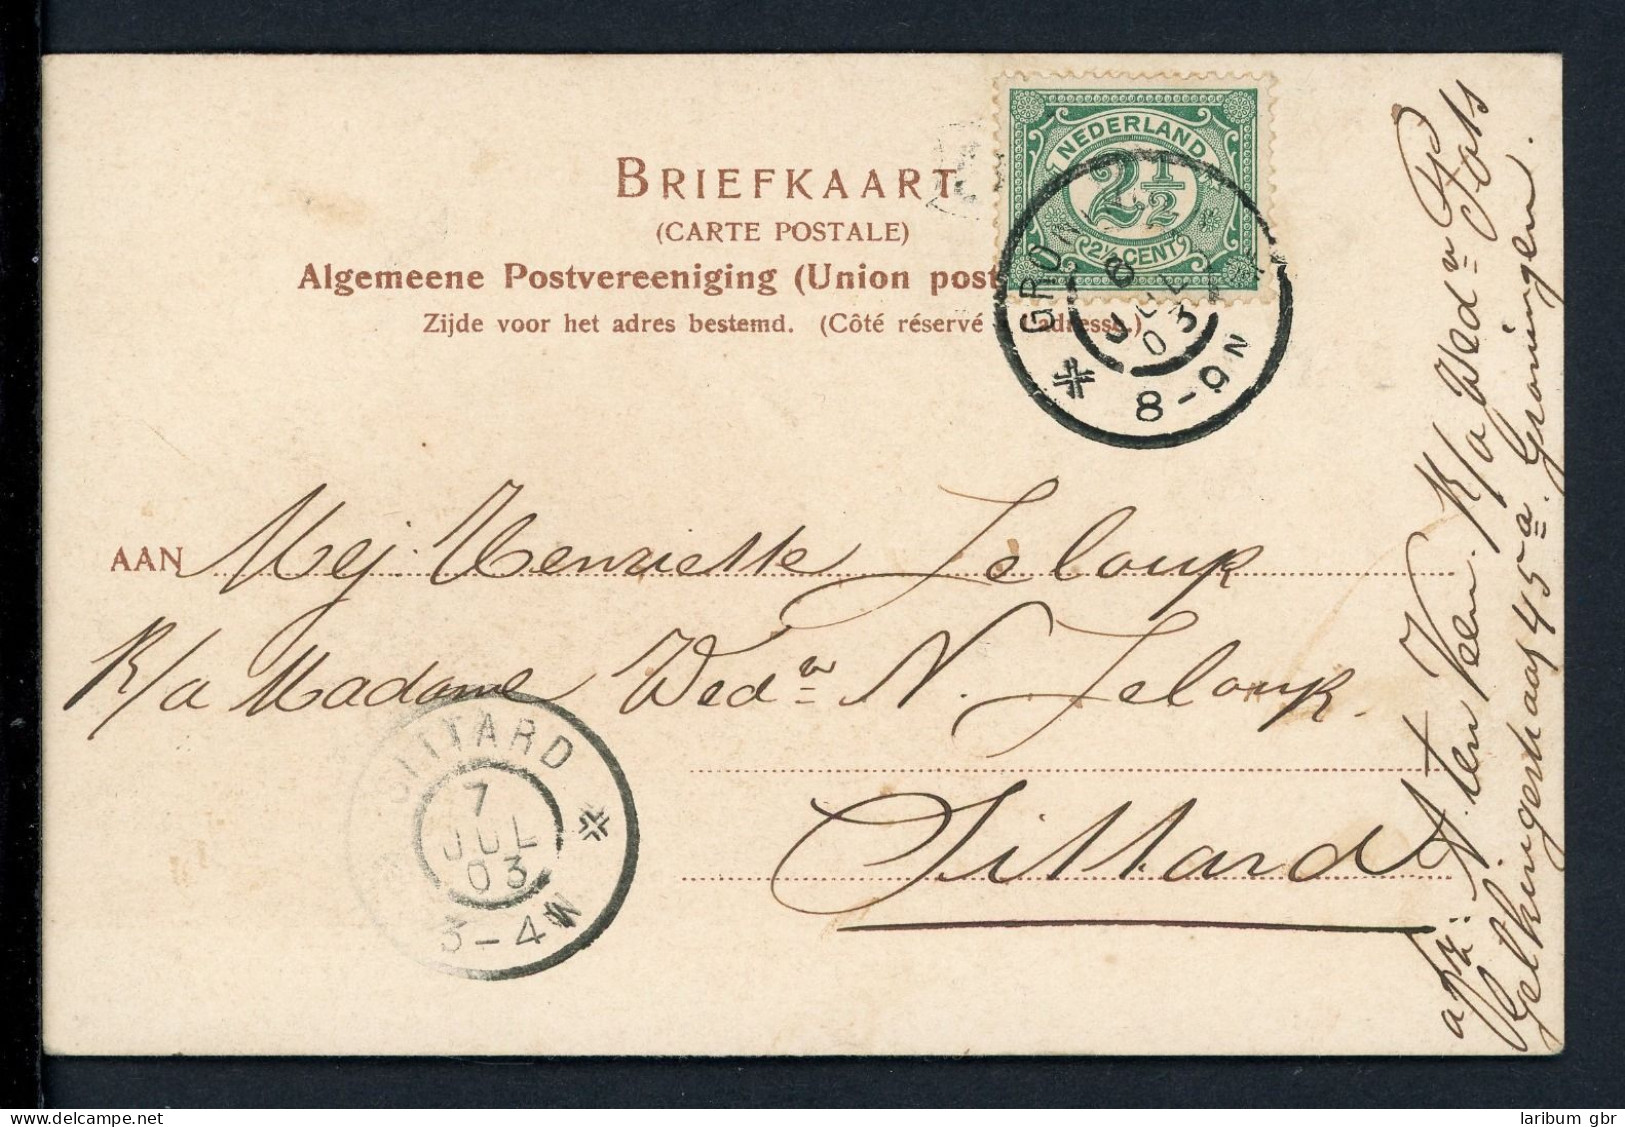 BRIEFKAART
(CARTE POSTALE)
Algemeene Postvereeniging (Union post
Zijde voor het adres bestemd. (Côté réservé adresse.)
NEDERLAND
2 1/2
2½ CENT
GRON
6
JUL
03
8-9N
AAN Mej. Henriette Jelouk
K/a Madame Wedn N. Jelouk.
Sittard
SITTARD
7
JUL
03
3-4N
afz: A. ten Veen. K/a Wedn Pots
45a. Groningen.
laribum gbr